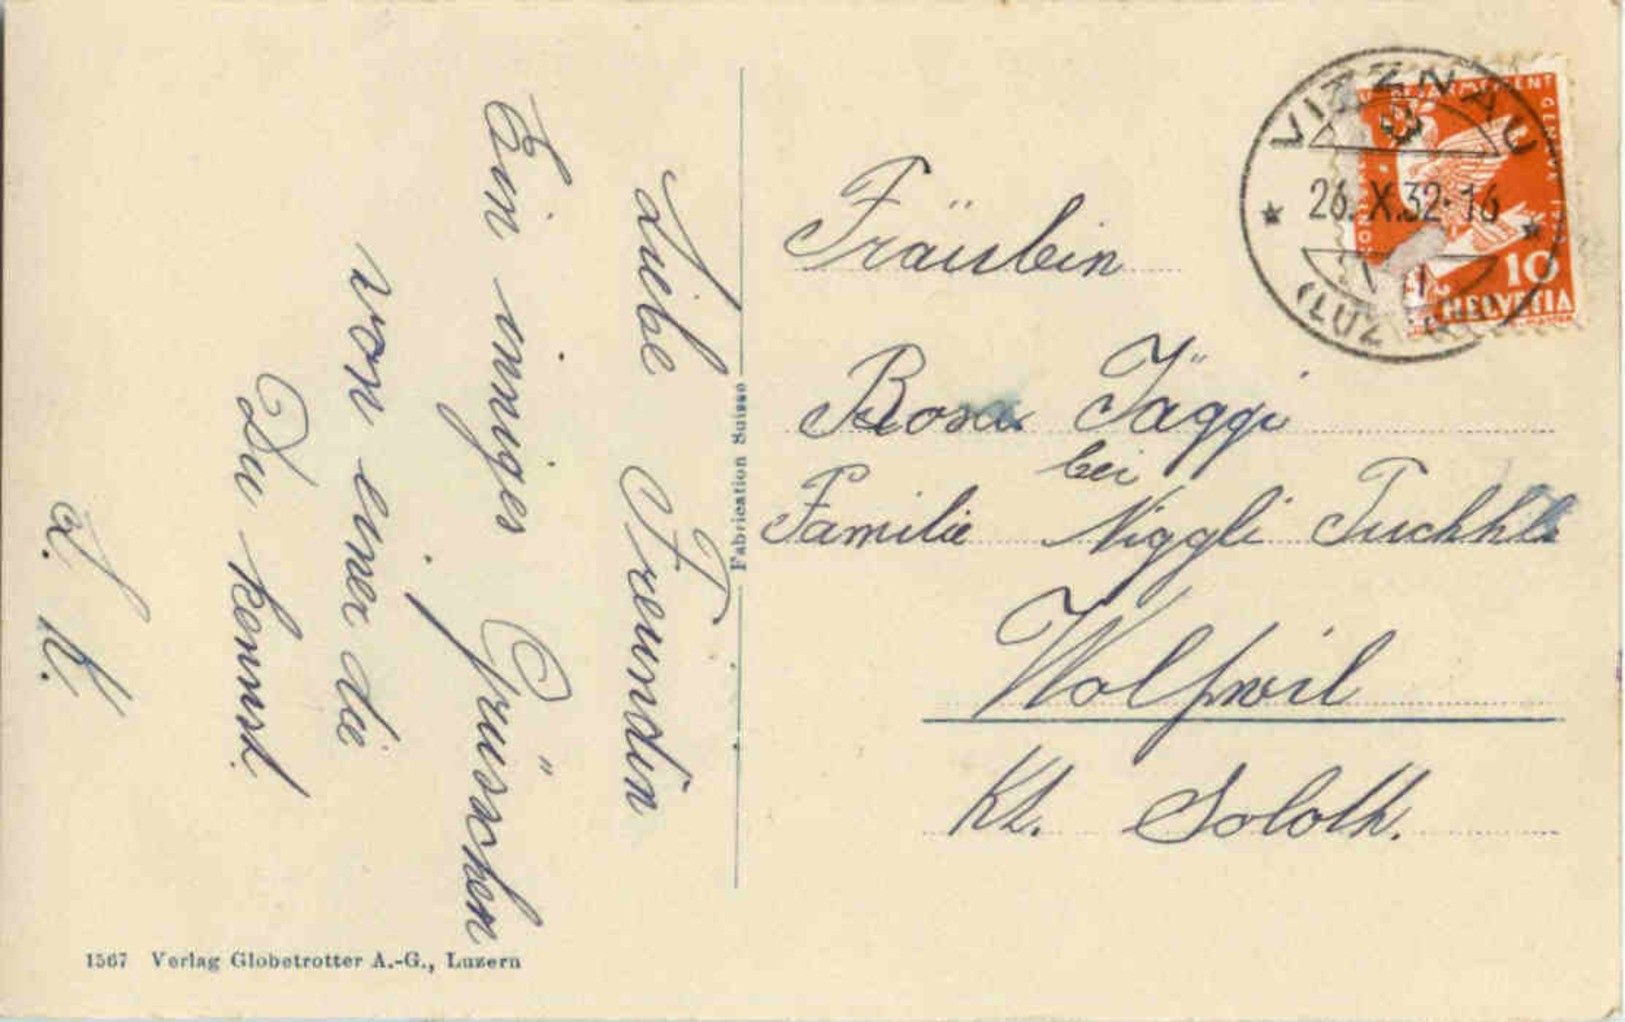 Liebe Freundin
Ein inniges Grüsschen
von einer die
Du kennst
L. K.
Fabrication Suisse
1567 Verlag Globetrotter A.-G., Luzern
VITZNAU
26.X.32-16
(LUZERN)
10
HELVETIA
Fräulein
Rosa Jäggi
bei
Familie Niggli Tuchhdl
Wolfwil
Kt. Soloth.